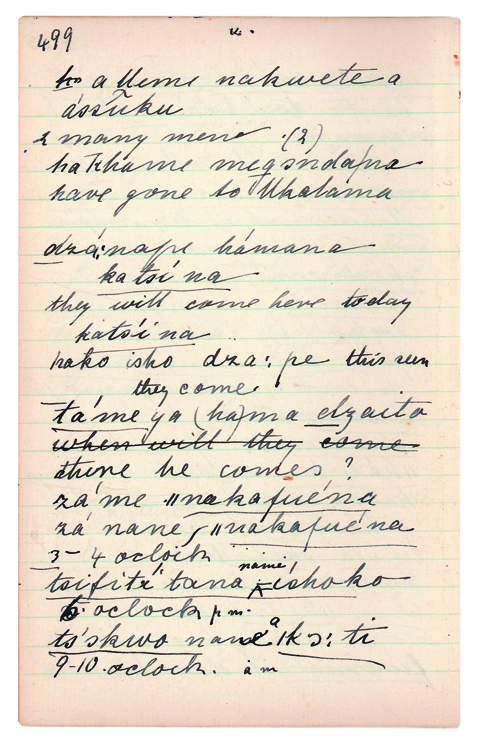 499
a lleme nakwete a
ássūku
2 many mene (2)
hakhame
have gone to Ukalama
dzá:nape hámana
katsí na
they will come here today
katsí na
hako isho dza: pe this seen
they come
táme ya (ha)ma dzaito
when will they come
there he comes?
zá me "nakafuéna
zá nane "nakafuéna
3-4 oclock
namé
tsifití tana íshoko
6 oclock pm.
ts'skwo nane a ikɔ: ti
9-10. oclock. am